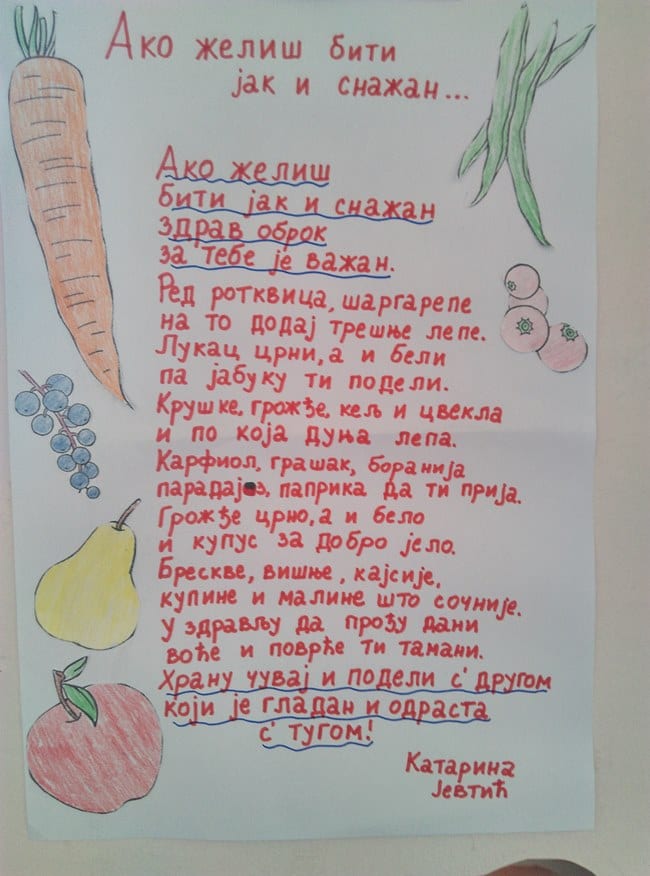 Ако желиш бити
јак и снажан...
Ако желиш
бити јак и снажан
здрав оброк
за тебе је важан.
Ред ротквица, шаргарепе
на то додај трешње лепе.
Лукац црни, а и бели
па јабуку ти подели.
Крушке, грожђе, кељ и цвекла
и по која дуња лепа.
Карфиол, грашак, боранија
парадајз, паприка да ти прија.
Грожђе црно, а и бело
и купус за добро јело.
Брескве, вишње, кајсије,
купине и малине што сочније.
У здрављу да прођу дани
воће и поврће ти тамани.
Храну чувај и подели с' другом
који је гладан и одраста
с' тугом!
Катарина
Јевтић